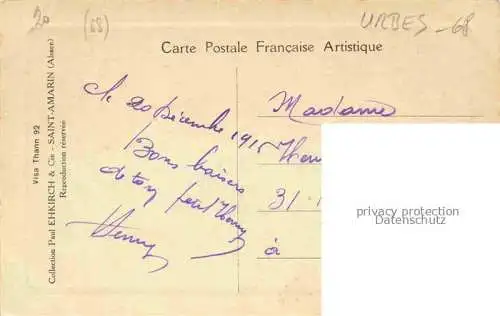 20
(68)
URBES - 68
Carte Postale Française Artistique
Visa Thann 92
Collection Paul EHKIRCH & Cie - SAINT-AMARIN (Alsace)
Reproduction réservée
le 20 Décembre 1915
Bons baisers
de ton petit Henry
Henry
Madame
31
à
privacy protection
Datenschutz